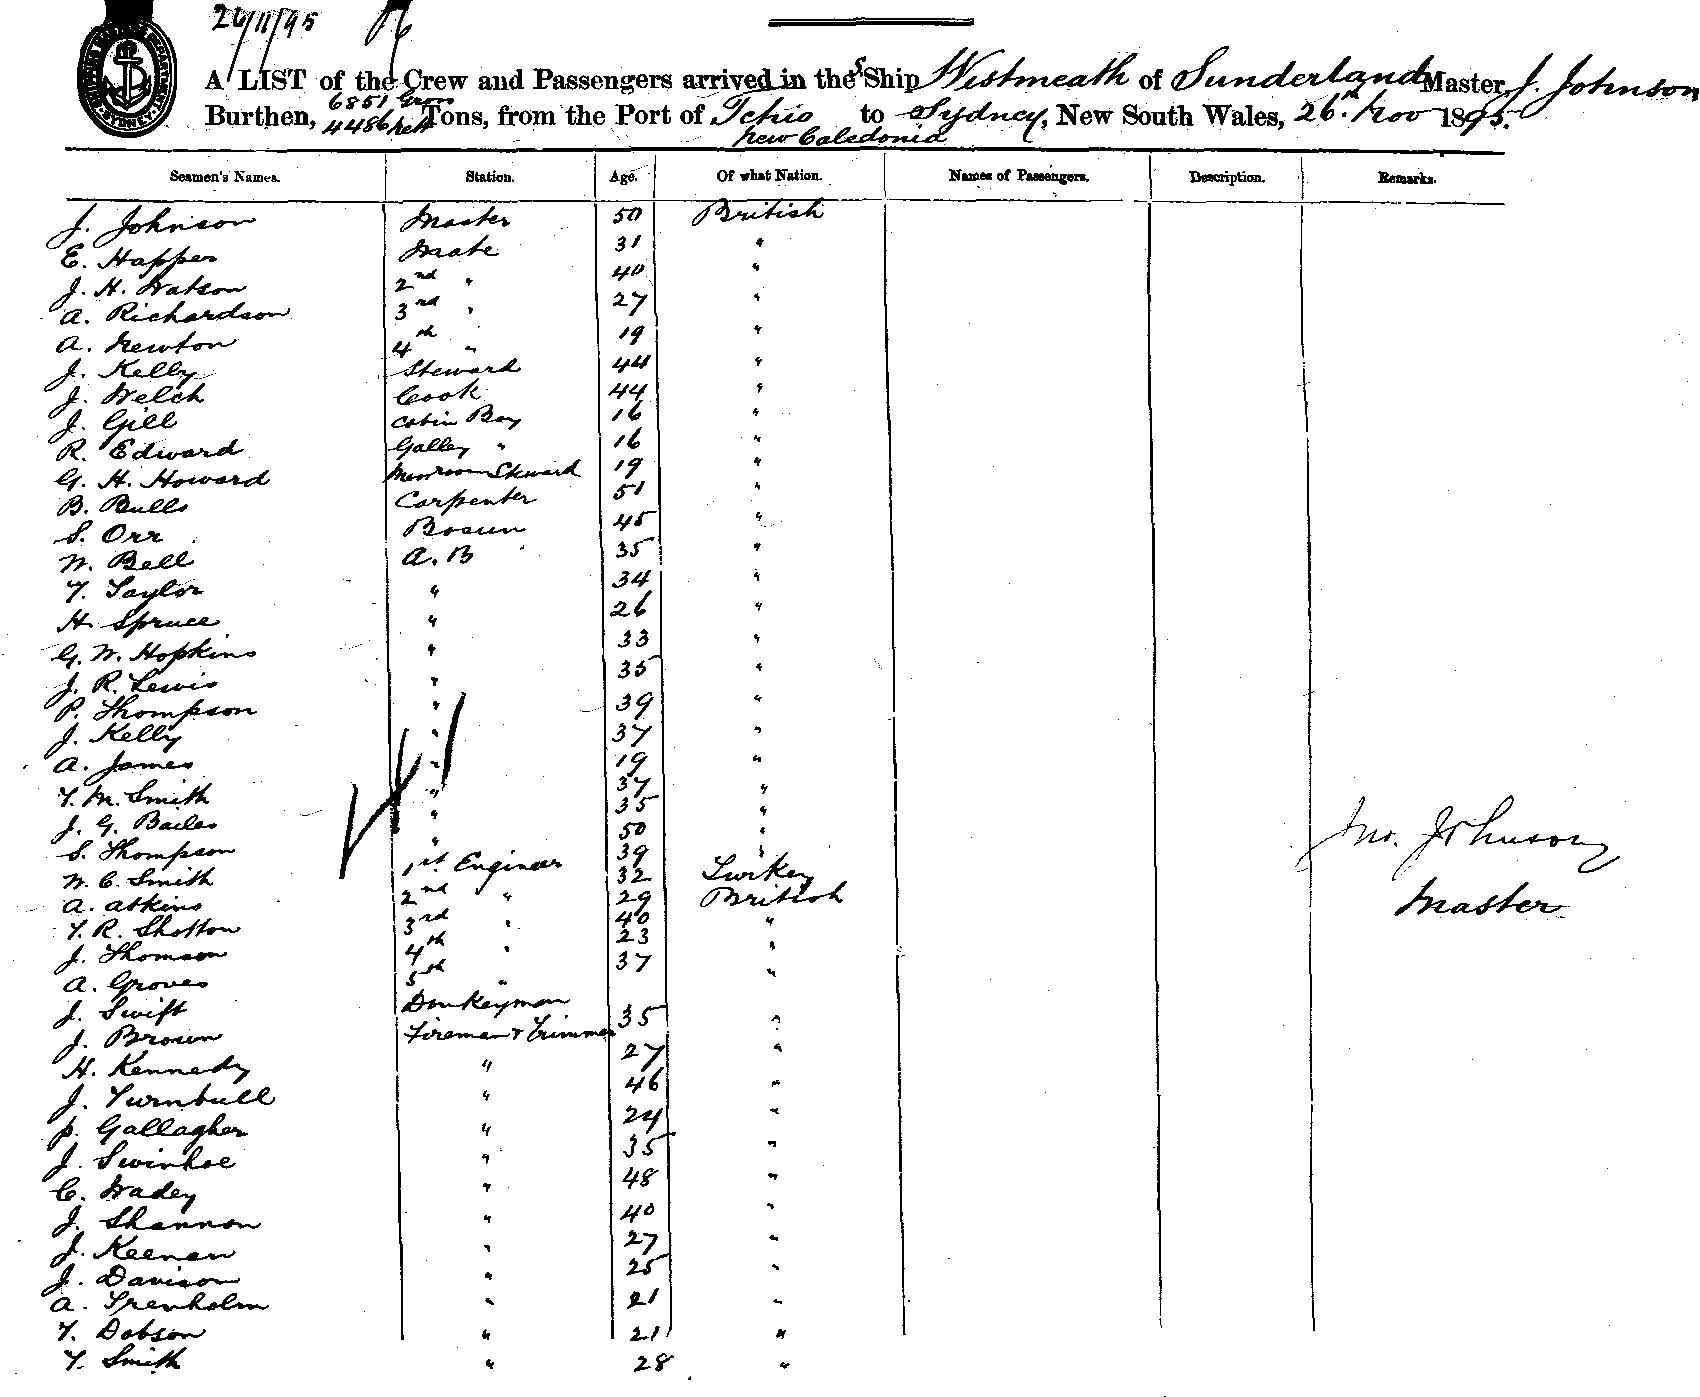 26/11/95
A LIST of the Crew and Passengers arrived in the S Ship Westmeath of Sunderland Master, J. Johnson
Burthen, 6851 Gross 4486 nett Tons, from the Port of Tchio New Caledonia to Sydney, New South Wales, 26th Nov 1895.
Seamen's Names. Station. Age. Of what Nation. Names of Passengers. Description. Remarks.
J. Johnson Master 50 British
E. Happer Mate 31 "
J. H. Watson 2nd " 40 "
A. Richardson 3rd " 27 "
A. Newton 4th " 19 "
J. Kelly Steward 44 "
J. Welch Cook 44 "
J. Gill Cabin Boy 16 "
R. Edward Galley " 16 "
G. H. Howard Messroom Steward 19 "
B. Bulls Carpenter 51 "
S. Orr Bosun 45 "
W. Bell A. B 35 "
T. Taylor " 34 "
H. Spruce " 26 "
G. W. Hopkins " 33 "
J. R. Lewis " 35 "
P. Thompson " 39 "
J. Kelly " 37 "
A. James " 19 "
T. M. Smith " 37 "
J. G. Bailes " 35 "
S. Thompson " 50 "
W. C. Smith 1st Engineer 39 "
A. Atkins 2nd " 32 Turkey
T. R. Shotton 3rd " 29 British
J. Thomson 4th " 40 "
A. Groves 5th " 23 "
J. Swift Donkeyman 37 "
J. Brown Fireman & Trimmer 35 "
H. Kennedy " 27 "
J. Turnbull " 46 "
P. Gallagher " 24 "
J. Swinhoe " 35 "
C. Wadey " 48 "
J. Shannon " 40 "
J. Keenan " 27 "
J. Davison " 25 "
A. Trenholm " 21 "
T. Dobson " 21 "
T. Smith " 28 "
Jno. Johnson
Master